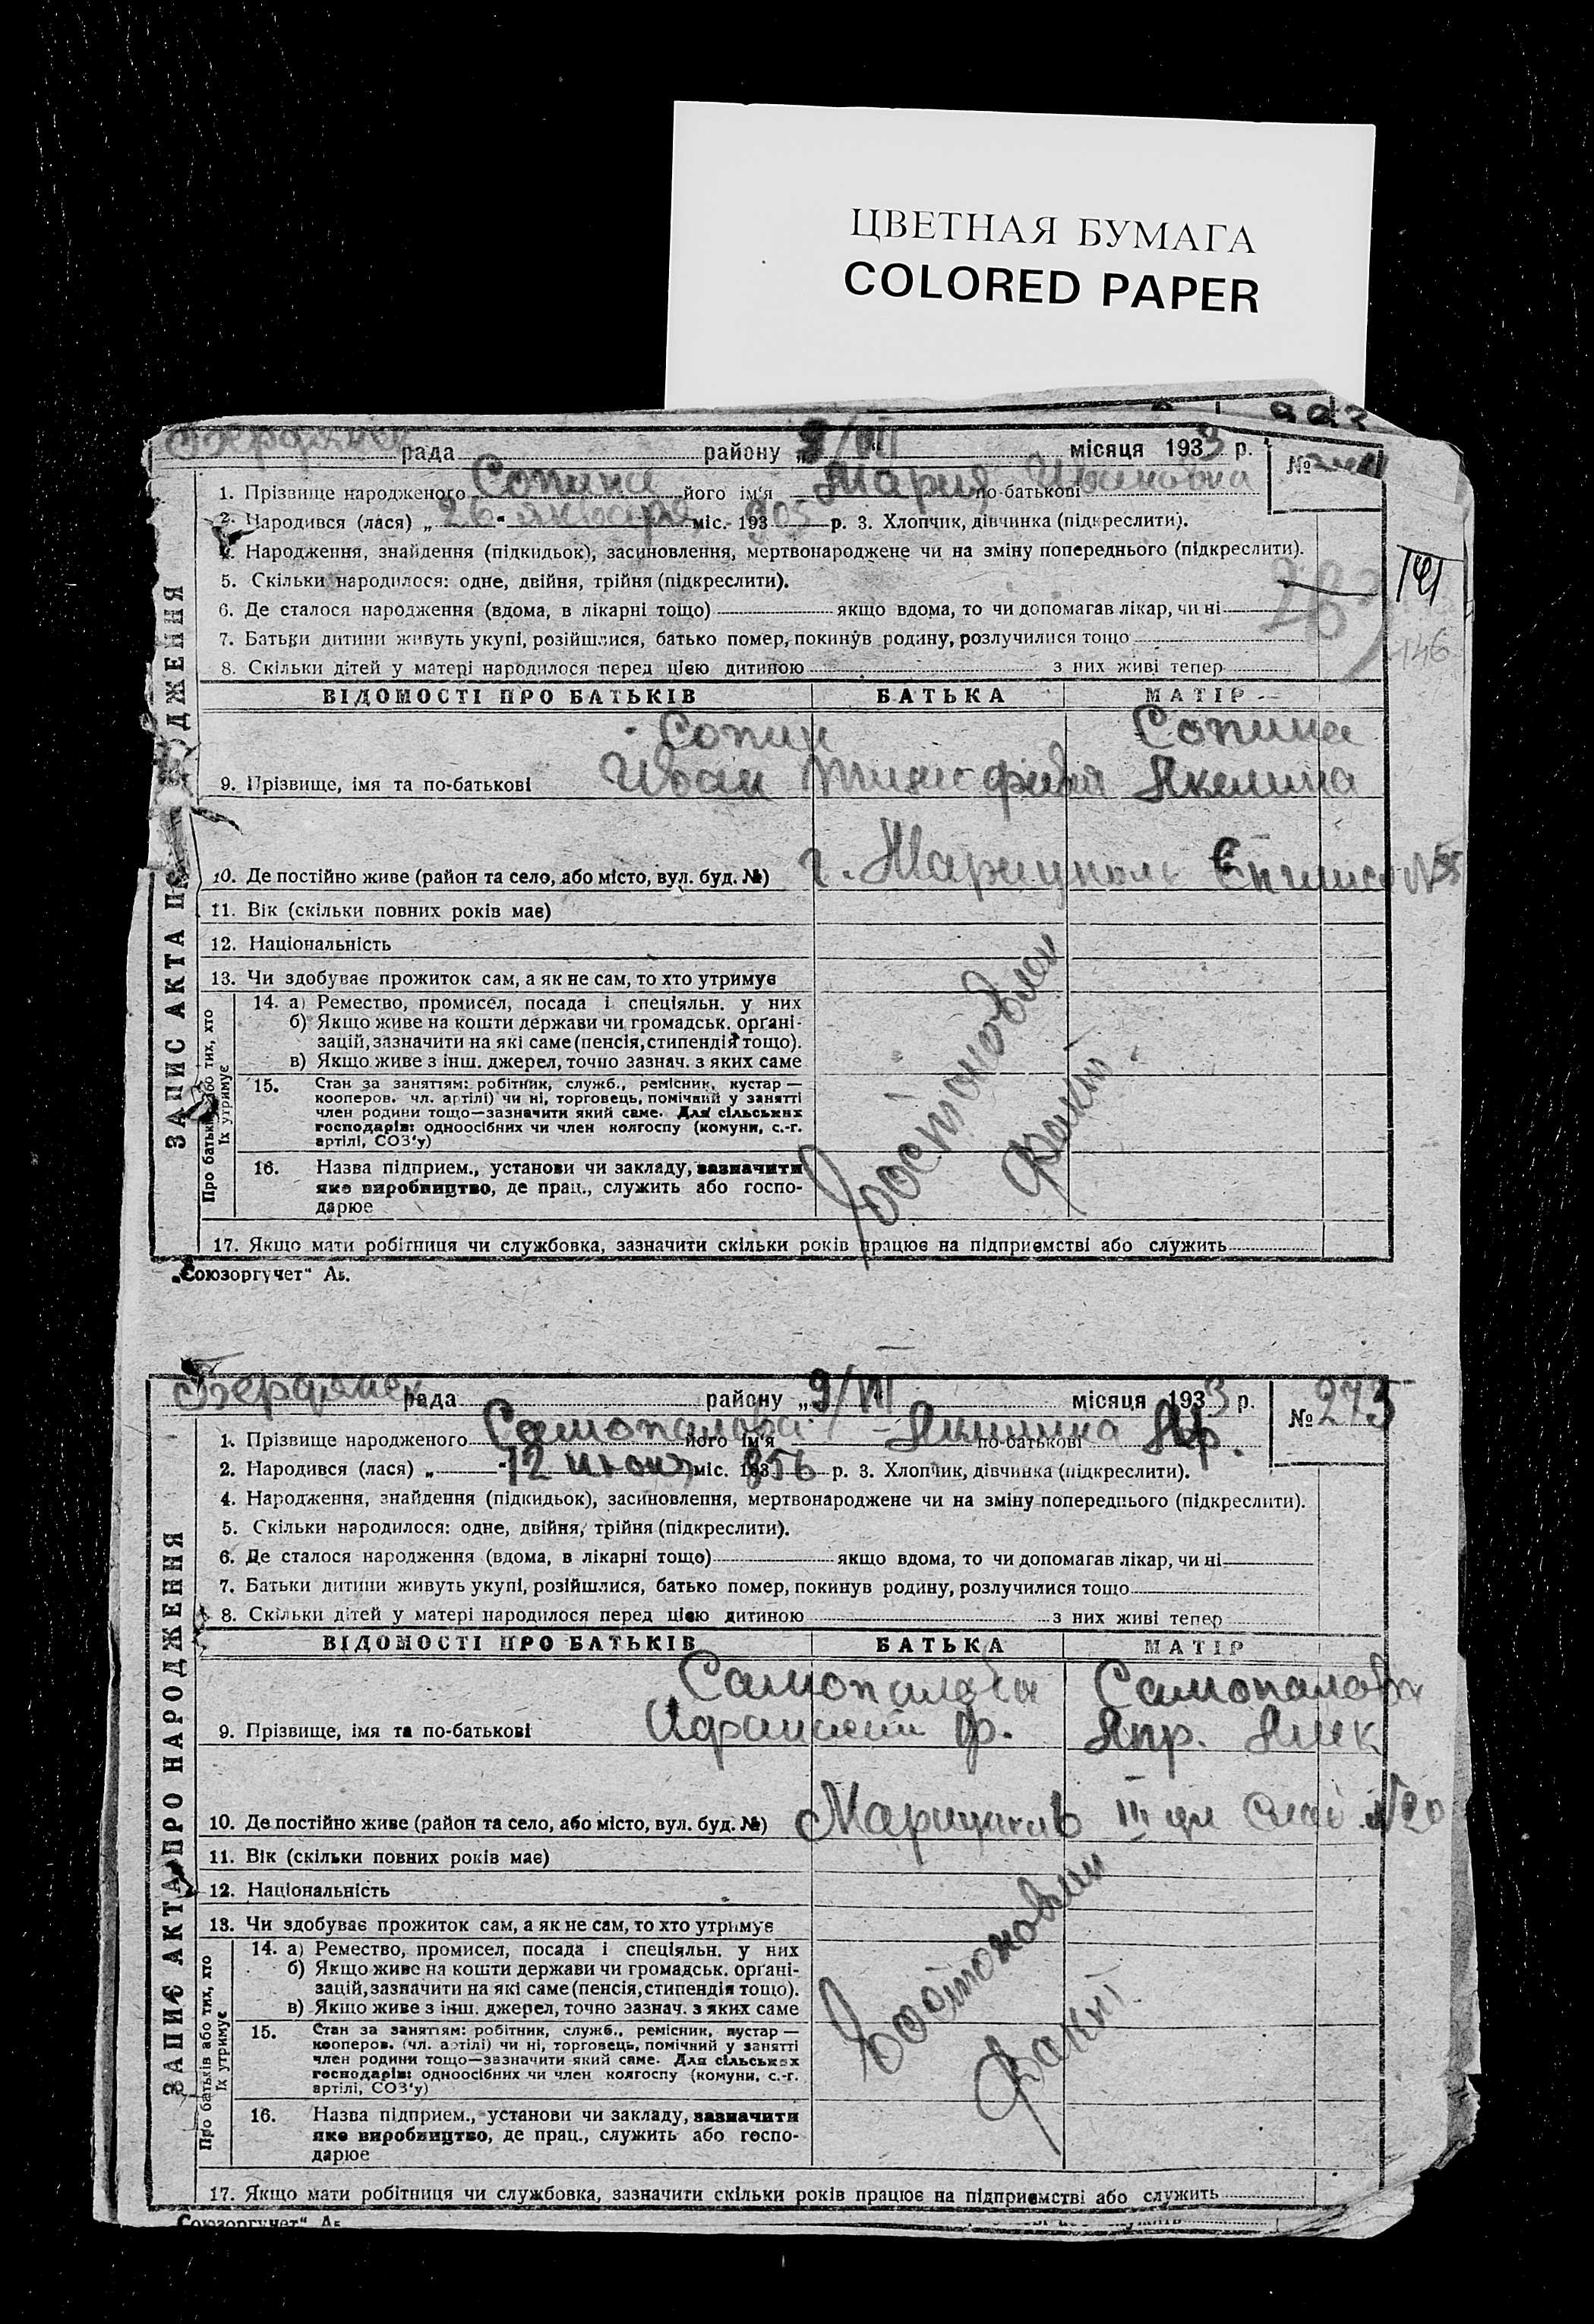 ЦВЕТНАЯ БУМАГА
COLORED PAPER
Бердянск рада району „9/VII місяця 1933 р. №
1. Прізвище народженого Сопина його ім'я Мария по-батькові Ивановна
2. Народився (лася) „26“ января міс. 193 905 р. 3. Хлопчик, дівчинка (підкреслити).
4. Народження, знайдення (підкидьок), засиновлення, мертвонароджене чи на зміну попереднього (підкреслити).
5. Скільки народилося: одне, двійня, трійня (підкреслити).
6. Де сталося народження (вдома, в лікарні тощо) якщо вдома, то чи допомагав лікар, чи ні
7. Батьки дитини живуть укупі, розійшлися, батько помер, покинув родину, розлучилися тощо
146
8. Скільки дітей у матері народилося перед цією дитиною з них живі тепер
ВІДОМОСТІ ПРО БАТЬКІВ БАТЬКА МАТІР
Сопин Сопина
9. Прізвище, імя та по-батькові Иван Акелина
10. Де постійно живе (район та село, або місто, вул. буд. №) г. Мариуполь
11. Вік (скільки повних років має)
12. Національність
13. Чи здобуває прожиток сам, а як не сам, то хто утримує
14. а) Ремество, промисел, посада і спеціяльн. у них
б) Якщо живе на кошти держави чи громадськ. органі-
зацій, зазначити на які саме (пенсія, стипендія тощо).
в) Якщо живе з інш. джерел, точно зазнач. з яких саме
15. Стан за заняттям: робітник, служб., ремісник, кустар —
кооперов. чл. артілі) чи ні, торговець, помічний у занятті
член родини тощо—зазначити який саме. Для сільських
господарів: одноосібних чи член колгоспу (комуни, с.-г.
артілі, СОЗ'у)
16. Назва підприєм., установи чи закладу, зазначити
яке виробництво, де прац., служить або госпо-
дарює
Востоновлен
факт
17. Якщо мати робітниця чи службовка, зазначити скільки років працює на підприємстві або служить
ЗАПИС АКТА ПРО НАРОДЖЕННЯ
Про батьків або тих, хто
їх утримує
„Союзоргучет“ Аз.
Бердянск рада району „9/VII місяця 1933 р. № 273
1. Прізвище народженого Самопалова його ім'я Акилина по-батькові Аф.
2. Народився (лася) „12 июня міс. 193 856 р. 3. Хлопчик, дівчинка (підкреслити).
4. Народження, знайдення (підкидьок), засиновлення, мертвонароджене чи на зміну попереднього (підкреслити).
5. Скільки народилося: одне, двійня, трійня (підкреслити).
6. Де сталося народження (вдома, в лікарні тощо) якщо вдома, то чи допомагав лікар, чи ні
7. Батьки дитини живуть укупі, розійшлися, батько помер, покинув родину, розлучилися тощо
8. Скільки дітей у матері народилося перед цією дитиною з них живі тепер
ВІДОМОСТІ ПРО БАТЬКІВ БАТЬКА МАТІР
Самопалова Самопалова
9. Прізвище, імя та по-батькові ф. Апр.
10. Де постійно живе (район та село, або місто, вул. буд. №) III №20
11. Вік (скільки повних років має)
12. Національність
13. Чи здобуває прожиток сам, а як не сам, то хто утримує
14. а) Ремество, промисел, посада і спеціяльн. у них
б) Якщо живе на кошти держави чи громадськ. органі-
зацій, зазначити на які саме (пенсія, стипендія тощо).
в) Якщо живе з інш. джерел, точно зазнач. з яких саме
15. Стан за заняттям: робітник, служб., ремісник, кустар —
кооперов. (чл. артілі) чи ні, торговець, помічний у занятті
член родини тощо—зазначити який саме. Для сільських
господарів: одноосібних чи член колгоспу (комуни, с.-г.
артілі, СОЗ'у)
16. Назва підприєм., установи чи закладу, зазначити
яке виробництво, де прац., служить або госпо-
дарює
Востоновлен
факт
17. Якщо мати робітниця чи службовка, зазначити скільки років працює на підприємстві або служить
ЗАПИС АКТА ПРО НАРОДЖЕННЯ
Про батьків або тих, хто
їх утримує
Союзоргучет“ Аз.